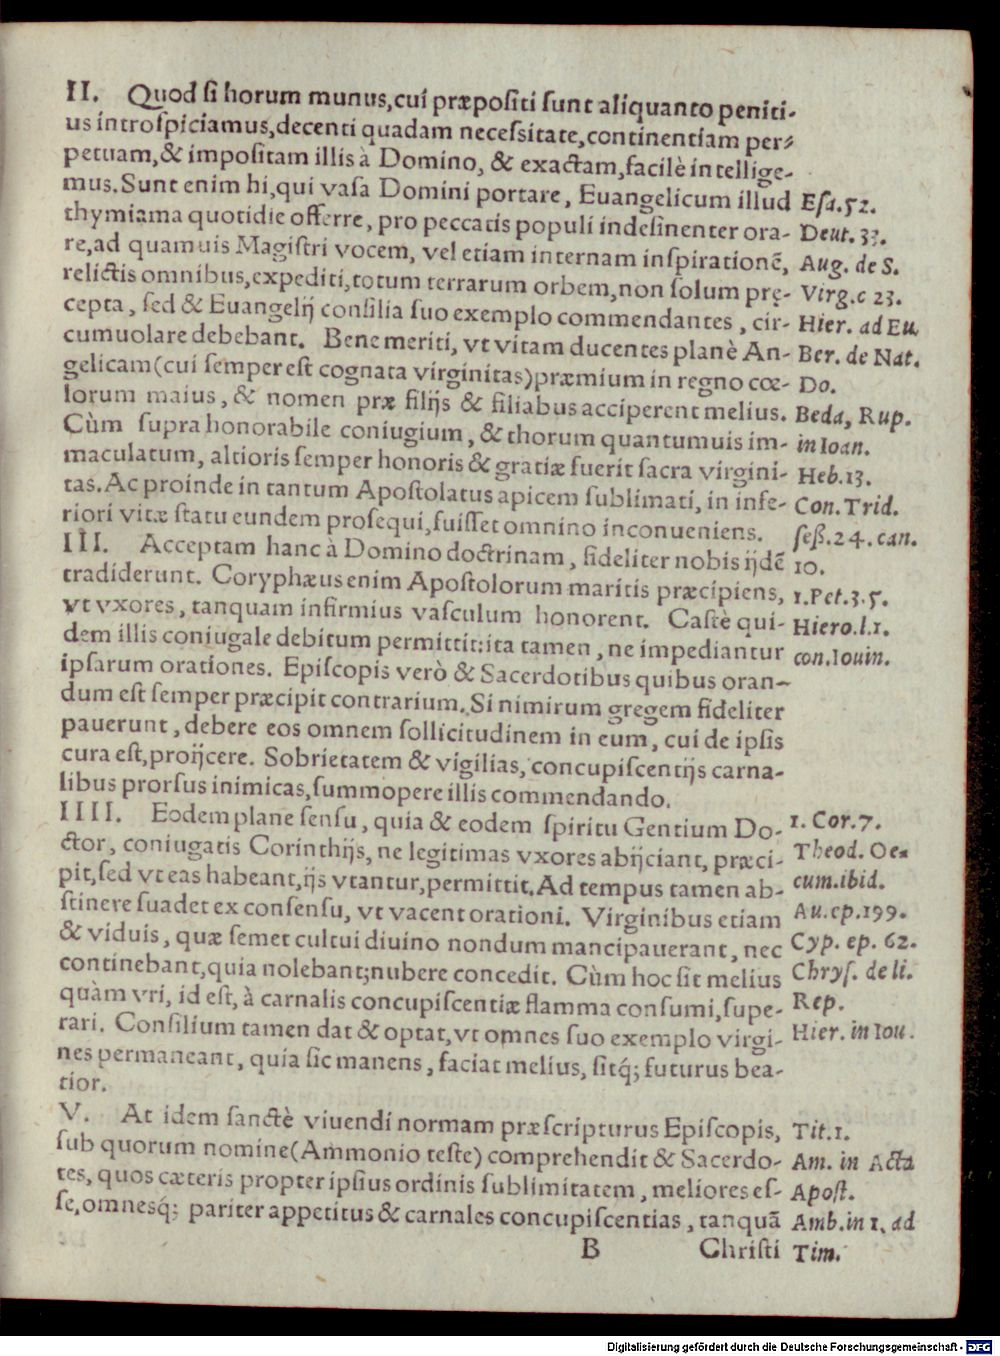 II. Quod ſi horum munus,cui præpoſiti ſunt aliquanto peniti-
us introſpiciamus,decenti quadam neceſsitate,continentiam per-
petuam,& impoſitam illis à Domino, & exactam,facilè intellige-
mus.Sunt enim hi,qui vaſa Domini portare, Euangelicum illud
thymiama quotidie offerre, pro peccatis populi indeſinenter ora-
re,ad quamuis Magiſtri vocem, vel etiam internam inſpirationẽ,
relictis omnibus,expediti,totum terrarum orbem,non ſolum prę-
cepta, ſed & Euangelij conſilia ſuo exemplo commendantes, cir-
cumuolare debebant. Bene meriti, vt vitam ducentes planè An-
gelicam(cui ſemper eſt cognata virginitas)præmium in regno cœ-
lorum maius, & nomen præ filijs & filiabus acciperent melius.
Cùm ſupra honorabile coniugium, & thorum quantumuis im-
maculatum, altioris ſemper honoris & gratiæ fuerit ſacra virgini-
tas.Ac proinde in tantum Apoſtolatus apicem ſublimati, in infe-
riori vitæ ſtatu eundem proſequi,fuiſſet omnino inconueniens.
III. Acceptam hanc à Domino doctrinam, fideliter nobis ijdẽ
tradiderunt. Coryphæus enim Apoſtolorum maritis præcipiens,
vt vxores, tanquam infirmius vaſculum honorent. Caſtè qui-
dem illis coniugale debitum permittit:ita tamen, ne impediantur
ipſarum orationes. Epiſcopis verò & Sacerdotibus quibus oran-
dum eſt ſemper præcipit contrarium. Si nimirum gregem fideliter
pauerunt, debere eos omnem ſollicitudinem in eum, cui de ipſis
cura eſt,proijcere. Sobrietatem & vigilias, concupiſcentijs carna-
libus prorſus inimicas,ſummopere illis commendando.
IIII. Eodem plane ſenſu, quia & eodem ſpiritu Gentium Do-
ctor, coniugatis Corinthijs, ne legitimas vxores abijciant, præci-
pit,ſed vt eas habeant,ijs vtantur,permittit.Ad tempus tamen ab-
ſtinere ſuadet ex conſenſu, vt vacent orationi. Virginibus etiam
& viduis, quæ ſemet cultui diuino nondum mancipauerant, nec
continebant,quia nolebant;nubere concedit. Cùm hoc ſit melius
quàm vri, id eſt, à carnalis concupiſcentiæ flamma conſumi,ſupe-
rari. Conſilium tamen dat & optat,vt omnes ſuo exemplo virgi-
nes permaneant, quia ſic manens, faciat melius, ſitq́; futurus bea-
tior.
V. At idem ſanctè viuendi normam præſcripturus Epiſcopis,
ſub quorum nomine(Ammonio teſte) comprehendit & Sacerdo-
tes, quos cæteris propter ipſius ordinis ſublimitatem, meliores eſ-
ſe,omnesq́; pariter appetitus & carnales concupiſcentias, tanquã
B Chriſti
Eſa.52.
Deut.33.
Aug. de S.
Virg.c 23.
Hier. ad Eu.
Ber. de Nat.
Do.
Beda, Rup.
in Ioan.
Heb.13.
Con. Trid.
ſeß.24.can.
10.
1.Pet.3.5.
Hiero.l.1.
con.Iouin.
1. Cor.7.
Theod. Oe-
cum.ibid.
Au.ep.199.
Cyp. ep. 62.
Chryſ. de li.
Rep.
Hier. in Iou.
Tit.1.
Am. in Acta
Apoſt.
Amb.in 1. ad
Tim.
Digitalisierung gefördert durch die Deutsche Forschungsgemeinschaft - DFG